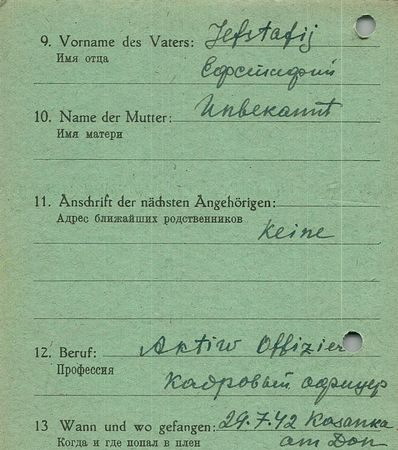 9. Vorname des Vaters: Jefstafij
Имя отца
Ефстафий
10. Name der Mutter: Unbekannt
Имя матери
11. Anschrift der nächsten Angehörigen:
Адрес ближайших родственников
Keine
12. Beruf: Aktiw Offizier
Профессия
Кадровый офицер
13 Wann und wo gefangen: 29.7.42 Kasanka
Когда и где попал в плен am Don